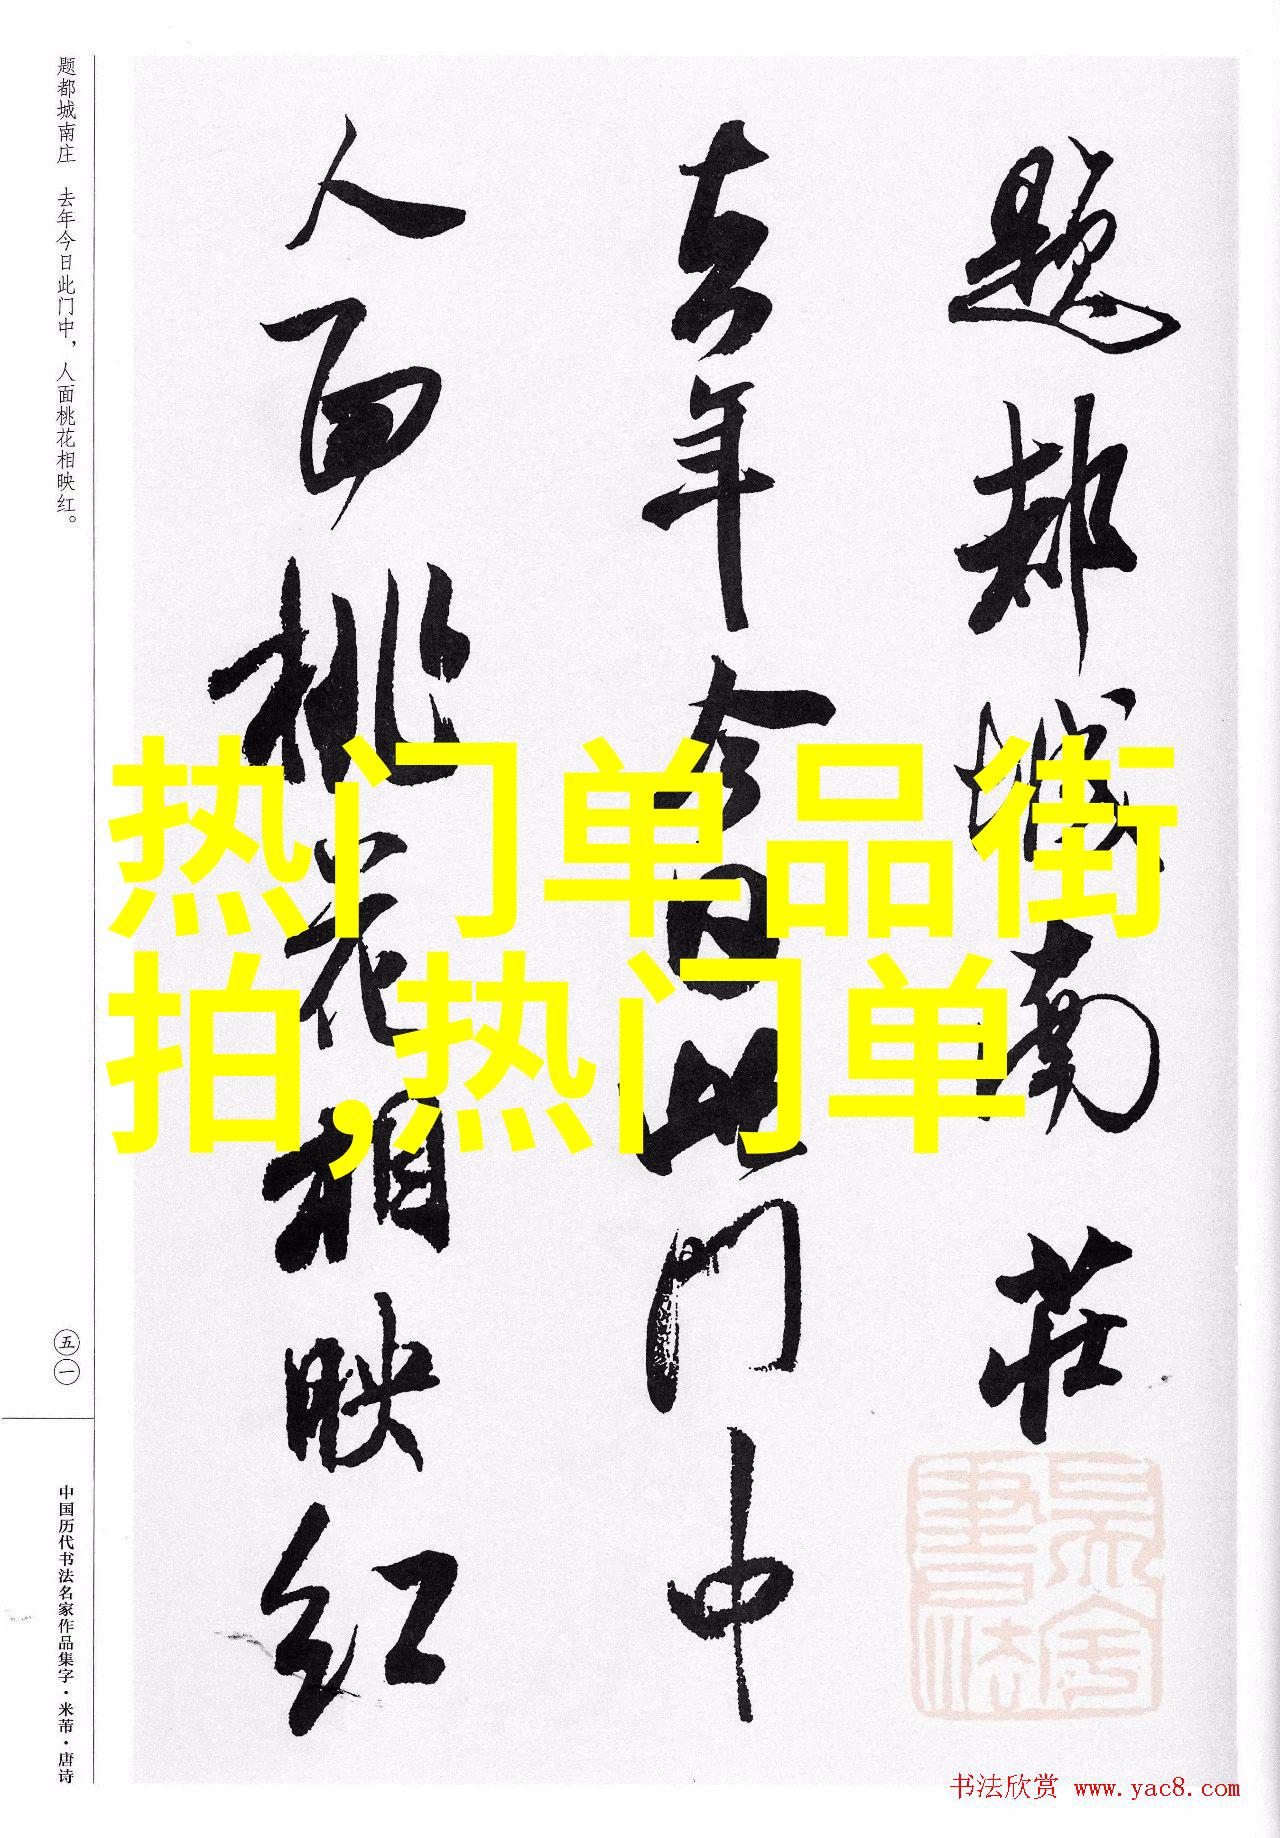 题都城南莊
去年今日此门中
人面桃花相映红
题都城南庄 去年今日此门中，人面桃花相映红。
五一
中国历代书法名家作品集字·米芾·唐诗
热门单品街
拍,热门单
书法欣赏 www.yac8.com